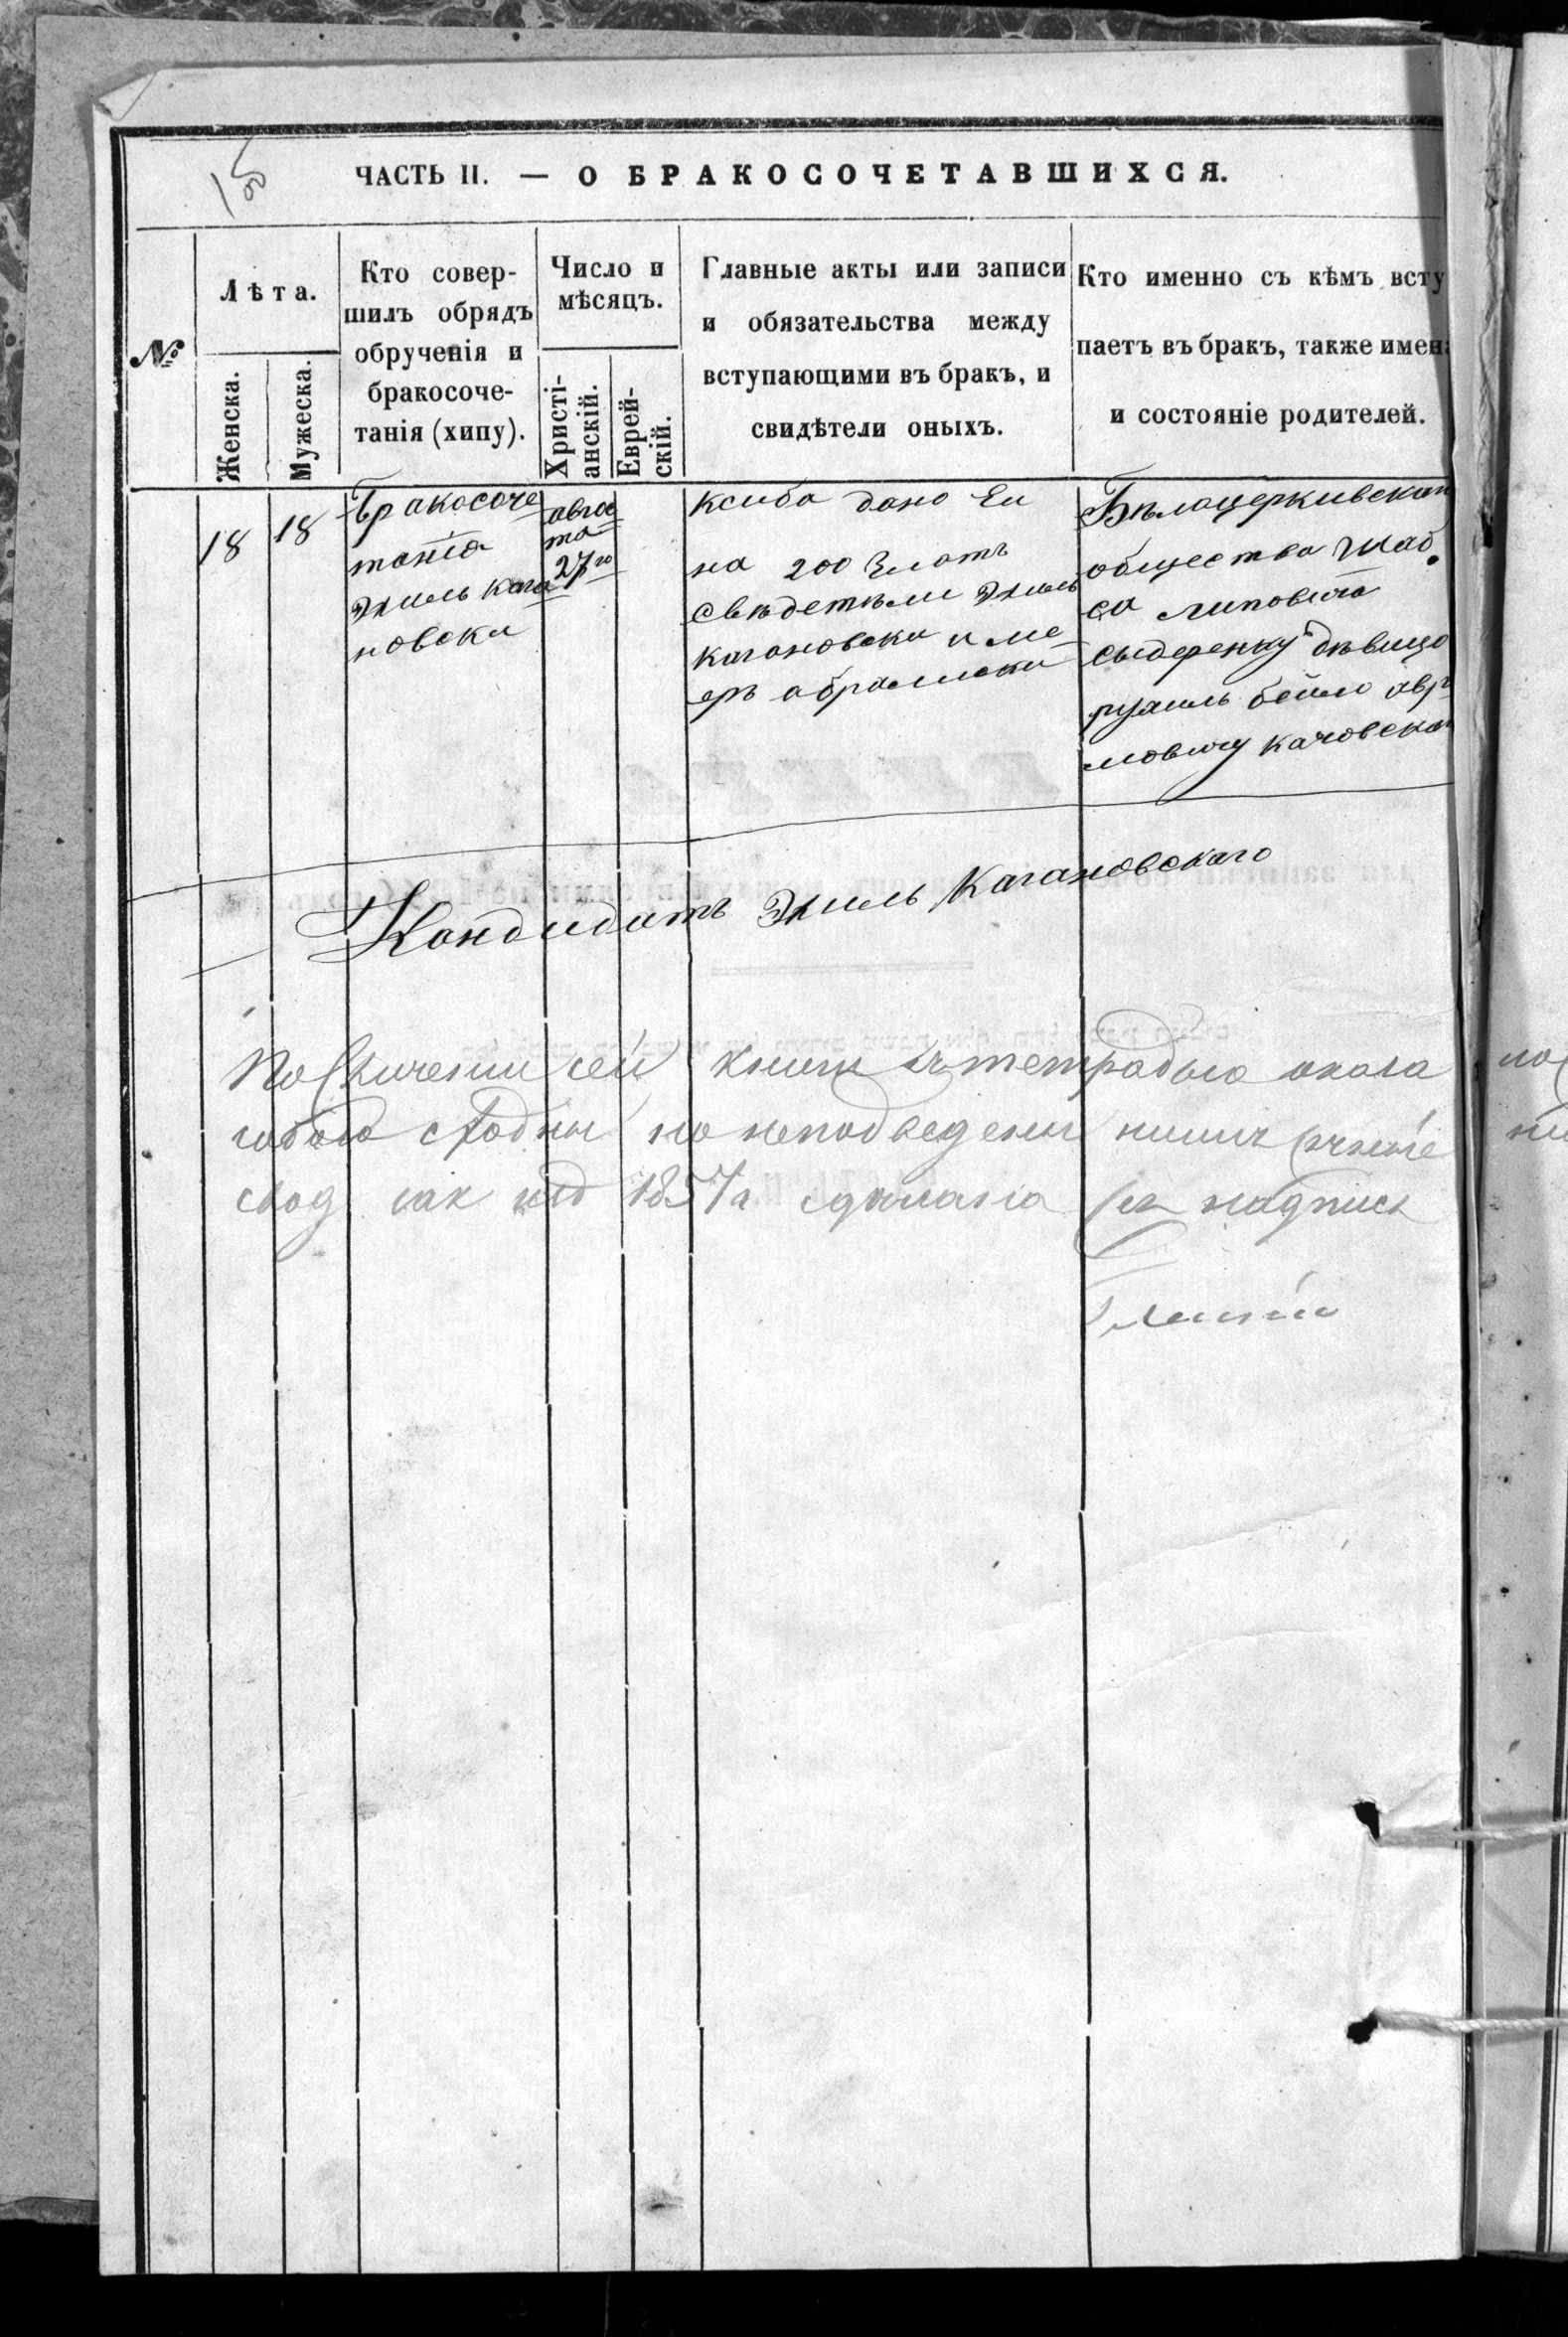 ЧАСТЬ II. — О БРАКОСОЧЕТАВШИХСЯ.
№
Лѣта.
Женска.
Мужеска.
Кто совер-
шилъ обрядъ
обрученія и
бракосоче-
танія (хипу).
Число и
мѣсяцъ.
Христі-
анскій.
Еврей-
скій.
Главные акты или записи
и обязательства между
вступающими въ бракъ, и
свидѣтели оныхъ.
Кто именно съ кѣмъ всту
паетъ въ бракъ, также имена
и состояніе родителей.
18
18
Бракосоче
танія
Эхиль Кага
новски
авгос
та
27го
ксиба дано Еи
на 200 Злотъ
свѣдетѣли Эхиль
Кагановски и ме
еръ абрамски
Бѣлоцерковскаго
общества Шаб
са липовича
дѣвицо
бейло авр
мовичу
Кандидатъ Эхиль Кагановскаго
По сличении сей книги съ тетрадью окага
собою сходны но неподведены
1857 г сделана надпись